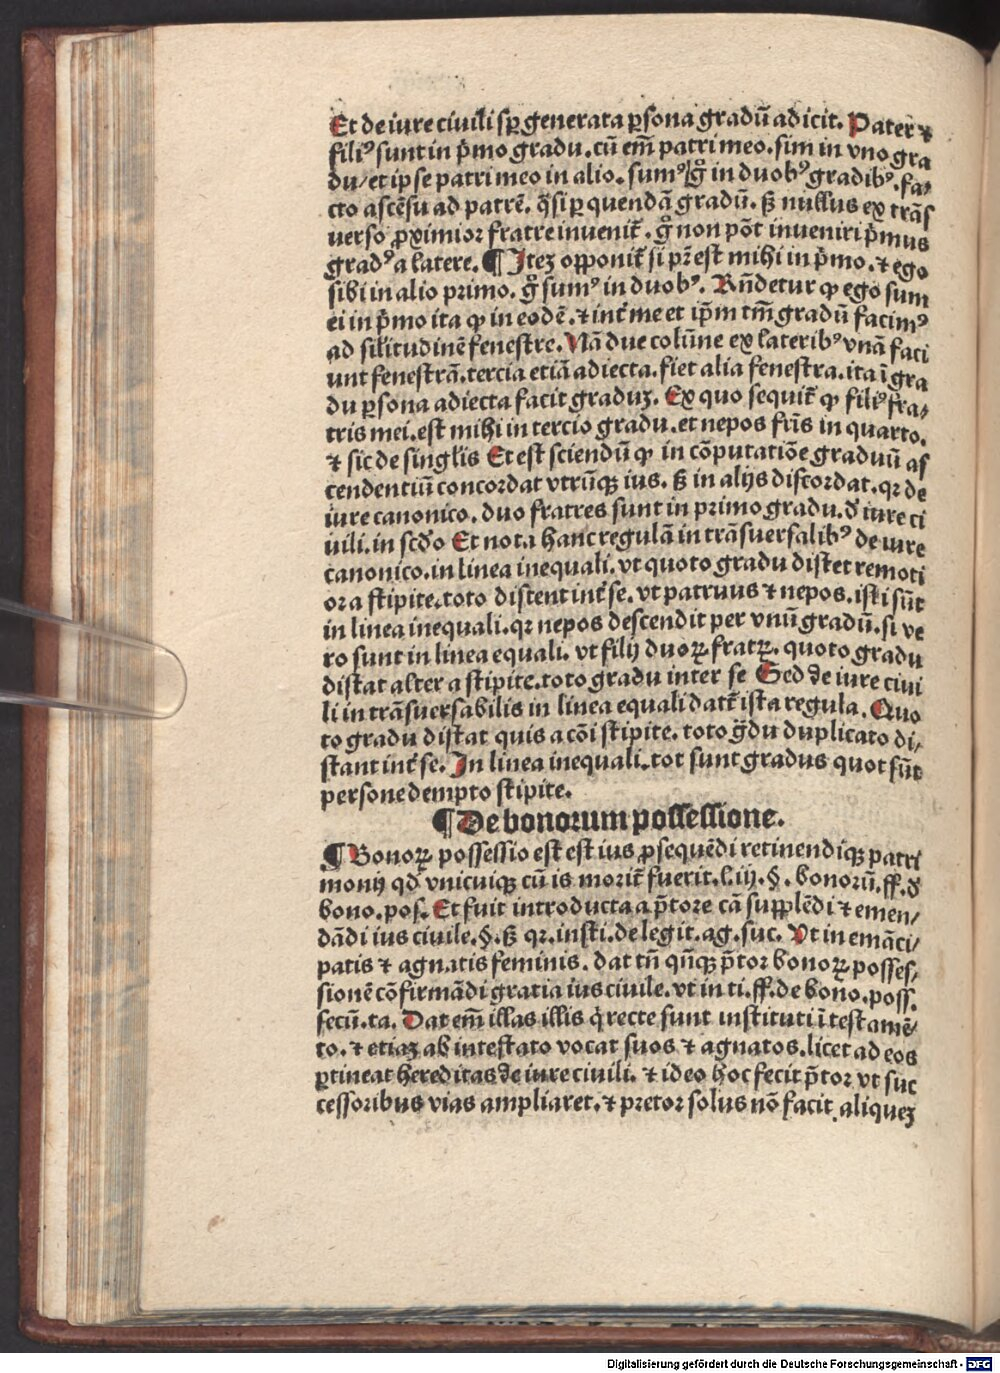 Et de iure ciuili sꝑ generata ꝑsona gradū adicit. Pater ⁊
filiꝰ sunt in p̄mo gradu. cū em̄ patri meo. sim in vno gra
du/et ipse patri meo in alio. sumꝰ g̊ in duobꝰ gradibꝰ. fa⸗
cto ascēsu ad patrē. q̄si ꝑ quendā gradū. ß nullus ex trās
verso ꝓximior fratre inuenit᷑. g̊ non pōt inueniri p̄mus
gradꝰ a latere. ¶ Itez opponit᷑ si pr̄ est mihi in p̄mo. ⁊ ego
sibi in alio primo. g̊ sumꝰ in duobꝰ. Rn̄detur ꝙ ego sum
ei in p̄mo ita ꝙ in eodē. ⁊ int᷑ me et ip̄m tm̄ gradū facimꝰ
ad silitudinē fenestre. Nā due colūne ex lateribꝰ vnā faci
unt fenestrā. tercia etiā adiecta. fiet alia fenestra. ita ī gra
du ꝑsona adiecta facit graduꝫ. Ex quo sequit᷑ ꝙ filiꝰ fra⸗
tris mei. est mihi in tercio gradu. et nepos fr̄is in quarto.
⁊ sic de singlis Et est sciendū ꝙ in cōputatiōe graduū as
cendentiū concordat vtrūqꝫ ius. ß in alijs discordat. qꝛ de
iure canonico. duo fratres sunt in primo gradu. đ iure ci
uili. in scđo Et nota hanc regulā in trāsuersalibꝰ de iure
canonico. in linea inequali. vt quoto gradu distet remoti
ora stipite. toto distent int᷑ se. vt patruus ⁊ nepos. isti sūt
in linea inequali. qꝛ nepos descendit per vnū gradū. si ve
ro sunt in linea equali. vt filij duoꝝ fratꝝ. quoto gradu
distat alter a stipite. toto gradu inter se Sed de iure ciui
li in trāsuersabilis in linea equali dat᷑ ista regula. Quo
to gradu distat quis a cōi stipite. toto g̊du duplicato di⸗
stant int᷑ se. In linea inequali. tot sunt gradus quot sūt
persone dempto stipite.
¶ De bonorum possessione.
¶ Bonoꝝ possessio est est ius ꝓsequēdi retinendiqꝫ patri
monij qđ vnicuiqꝫ cū is morit᷑ fuerit. l. iij. §. bonorū. ff. đ
bono. pos. Et fuit introducta a p̄tore cā supplēdi ⁊ emen⸗
dādi ius ciuile. §. ß qꝛ. insti. de legit. ag. suc. Ut in emāci⸗
patis ⁊ agnatis feminis. dat tn̄ qn̄qꝫ p̄tor bonoꝝ posses⸗
sionē cōfirmādi gratia ius ciuile. vt in ti. ff. de bono. poss.
secū. ta. Dat em̄ illas illis q̇ recte sunt instituti ī testamē⸗
to. ⁊ etiaꝫ ab intestato vocat suos ⁊ agnatos. licet ad eos
ꝑtineat hereditas de iure ciuili. ⁊ ideo hoc fecit p̄tor vt suc
cessoribus vias ampliaret. ⁊ pretor solus nō facit aliqueꝫ
Digitalisierung gefördert durch die Deutsche Forschungsgemeinschaft - DFG